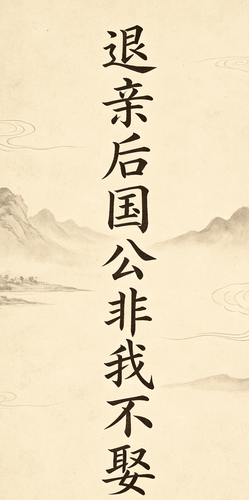 退亲后国公非我不娶